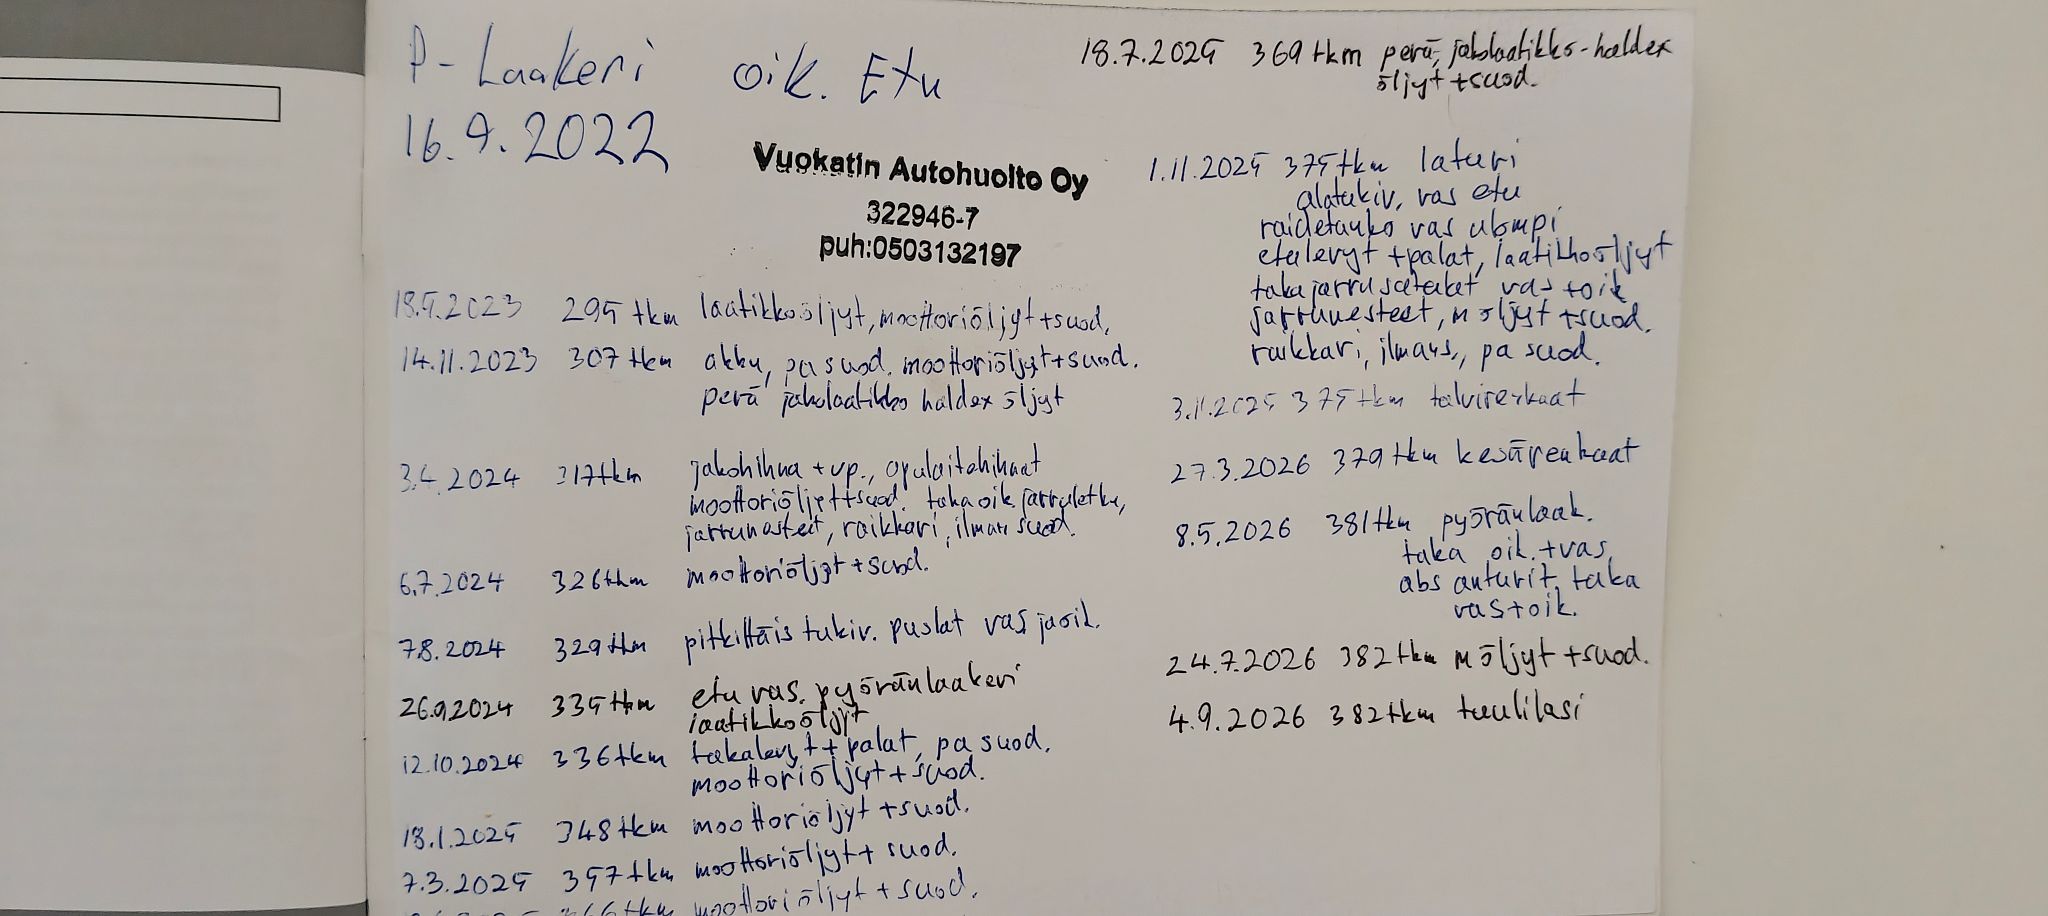 P-Laakeri oik. Etu
16.9.2022
Vuokatin Autohuolto Oy
322946-7
puh:0503132197
18.5.2023 295 tkm laatikkoöljyt, moottoriöljyt+suod,
14.11.2023 307 tkm akku, pa suod. moottoriöljyt+suod.
perä jakolaatikko haldex öljyt
3.4.2024 317tkm jakohihna + vp., apulaitehihnat
moottoriöljyt+suod. taka oik. jarruletku,
jarrunesteet, raikkari, ilman suod.
6.7.2024 326tkm moottoriöljyt+suod.
7.8.2024 329tkm pitkittäis tukiv. puslat vas ja oik.
26.9.2024 335tkm etu vas. pyöränlaakeri
laatikkoöljyt
12.10.2024 336tkm takalevyt+palat, pa suod.
moottoriöljyt+suod.
18.1.2025 348tkm moottoriöljyt+suod.
7.3.2025 357tkm moottoriöljyt+suod.
366tkm moottoriöljyt+suod.
18.7.2025 369tkm perä, jakolaatikko-haldex
öljyt+suod.
1.11.2025 375tkm laturi
alatukiv, vas etu
raidetanko vas ulompi
etulevyt+palat, laatikkoöljyt
takajarrusatulat vas+oik
jarrunesteet, möljyt+suod.
raikkari, ilmans., pa suod.
3.11.2025 375tkm talvirenkaat
27.3.2026 379tkm kesärenkaat
8.5.2026 381tkm pyöränlaak.
taka oik.+vas,
abs anturit, taka
vas+oik.
24.7.2026 382tkm möljyt+suod.
4.9.2026 382tkm tuulilasi